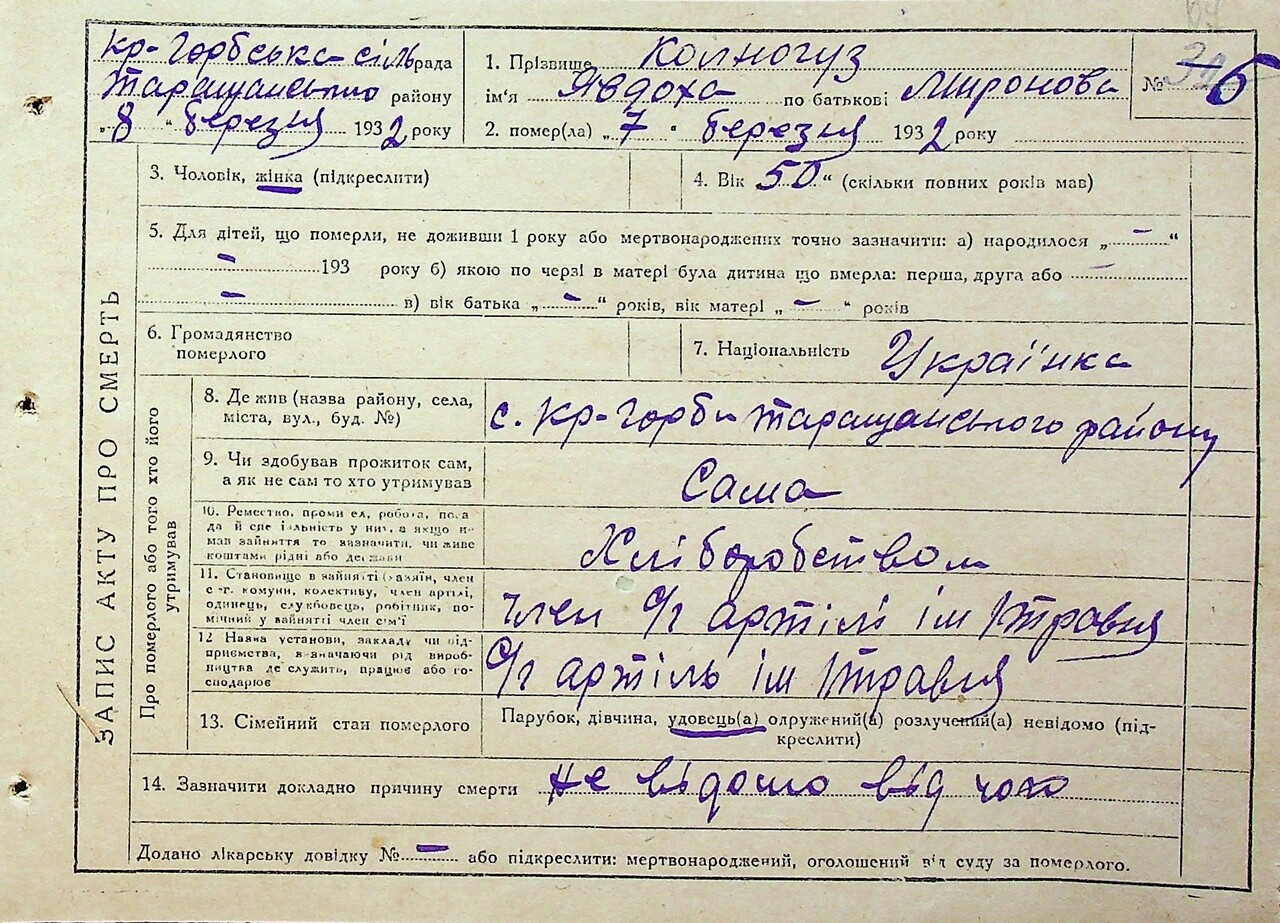 Кр-Горбська-сільрада
Таращанського району
„8“ березня 1932 року
1. Прізвище Колногуз
ім'я Явдоха по батькові Миронова
2. помер(ла) „7“ березня 1932 року
№ 5
3. Чоловік, жінка (підкреслити)
4. Вік 50 “ (скільки повних років мав)
5. Для дітей, що померли, не доживши 1 року або мертвонароджених точно зазначити: а) народилося „ — “
— 193 року б) якою по черзі в матері була дитина що вмерла: перша, друга або —
— в) вік батька „ — “ років, вік матері „ — “ років
6. Громадянство
померлого
7. Національність Українка
ЗАПИС АКТУ ПРО СМЕРТЬ
Про померлого або того хто його
утримував
8. Де жив (назва району, села,
міста, вул., буд. №)
с. Кр-Горби Таращанського району
9. Чи здобував прожиток сам,
а як не сам то хто утримував
Сама
10. Ремество, проми ел, робота, поса
да й спе іяльність у них, а якщо н-
мав зайняття то зазначити, чи живе
коштами рідні або держави
Хліборобством
11. Становище в зайнятті (хазяїн, член
с-г. комуни, колективу, член артілі,
одинець, службовець, робітник, по-
мічний у зайнятті член сім'ї
член с/г артілі ім 1 травня
12 Назва установи, закладу чи під-
приємства, зазначаючи рід вироб-
ництва де служить, працює або го-
сподарює
с/г артіль ім 1 травня
13. Сімейний стан померлого
Парубок, дівчина, удовець(а) одружений(а) розлучений(а) невідомо (під-
креслити)
14. Зазначити докладно причину смерти не відомо від чого
Додано лікарську довідку № — або підкреслити: мертвонароджений, оголошений від суду за померлого.